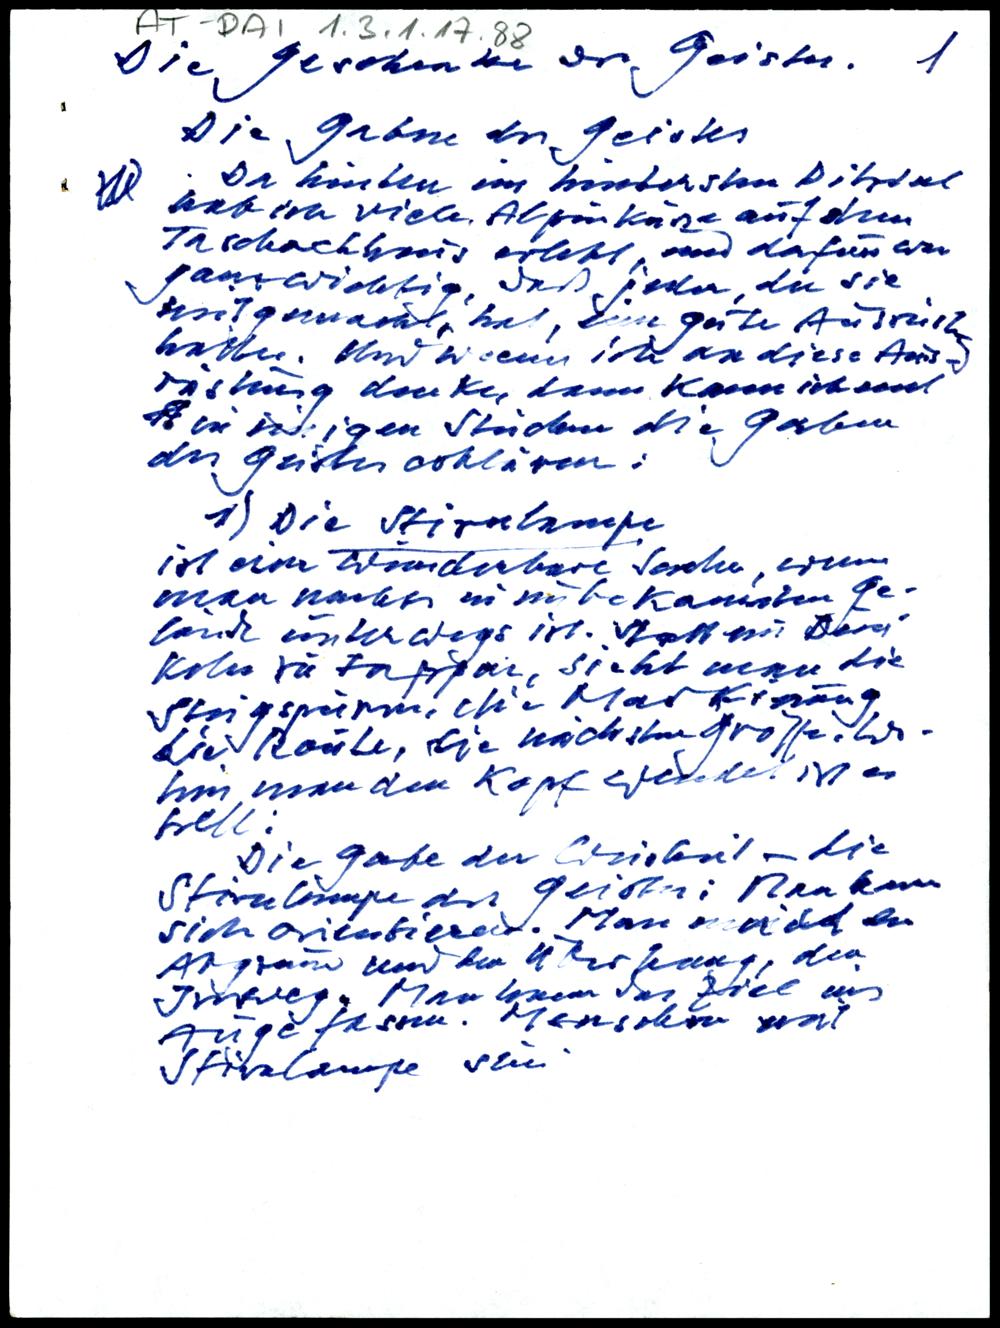 AT-DAI 1.3.1.17.88
Die Geschenke des Geistes. 1
Die Gaben des Geistes
Da hinten im hintersten Pitztal
hab ich viele Alpinkurse auf dem
Taschachhaus erlebt, und dafür war
ganz wichtig, daß jeder, der sie
mitgemacht hat, eine gute Ausrüstg
hatte. Und wenn ich an diese Aus-
rüstung denke, dann kann ich euch
in einigen Stücken die Gaben
des Geistes erklären:
1) Die Stirnlampe
ist eine wunderbare Sache, wenn
man nachts in unbekanntem Ge-
lände unterwegs ist. Statt im Dun-
keln zu tappen, sieht man die
Steigspuren, die Markierung
die Route, die nächsten Griffe. Wo-
hin man den Kopf wendet ist es
hell:
Die Gabe der Weisheit – die
Stirnlampe des Geistes: Man kann
sich orientieren. Man meidet den
Abgrund und den Überhang, den
Irrweg. Man kann das Ziel ins
Auge fassen. Menschen mit
Stirnlampe